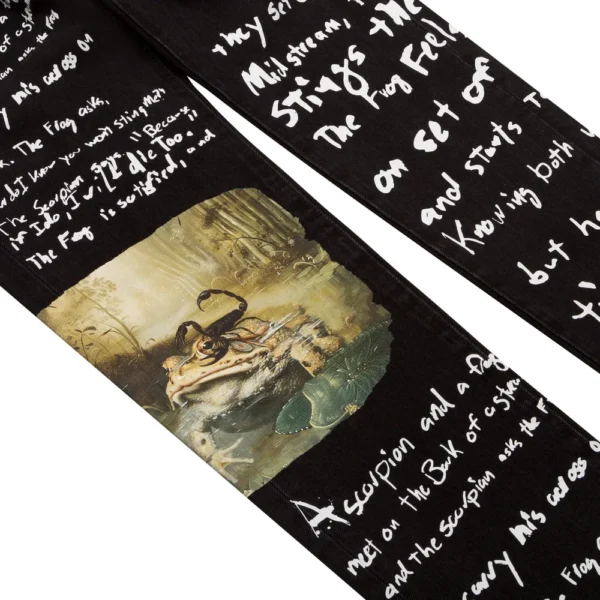 of a st
asks the Frog
rry his across on
k. The Frog asks,
do I know you won't sting Me?"
The Scorpion says, "Because
if I do, I will die too."
The Frog is satisfied, and
they set o
Midstream, the
Stings the
The Frog Feels
on set of
and starts T
Knowing both w
but ha
A scorpion and a frog
meet on the Bank of a stream
and the scorpion asks the Fr
arry his across o
The Frog as